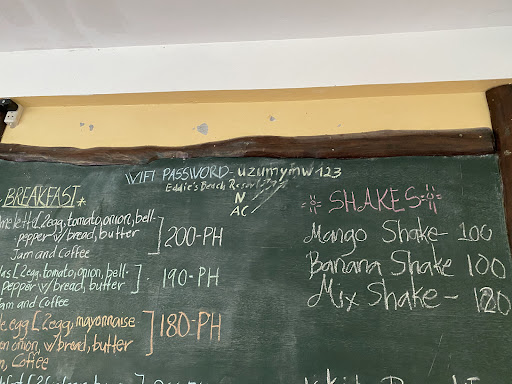 WIFI PASSWORD-uzumymw123
Eddie's Beach Resort
N
AC
BREAKFAST
[2egg, tomato, onion, bell-
pepper w/bread, butter
Jam and Coffee
200-PH
[2egg, tomato, onion, bell-
pepper w/ bread, butter
Jam and Coffee
190-PH
egg [2egg, mayonnaise
onion, w/bread, butter
Coffee
180-PH
SHAKES
Mango Shake- 100
Banana Shake 100
Mix Shake- 120